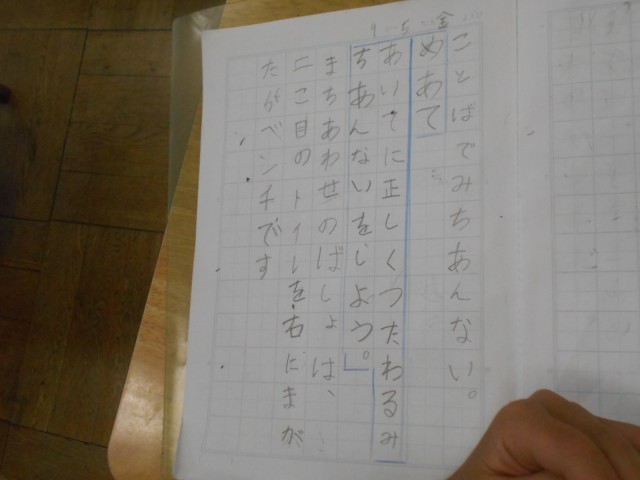 9 5 金
ことばでみちあんない。
めあて
あいてに正しくつたわるみ
ちあんないをしよう。
まちあわせのばしょは、
二こ目のトイレを右にまが
たがベンチです